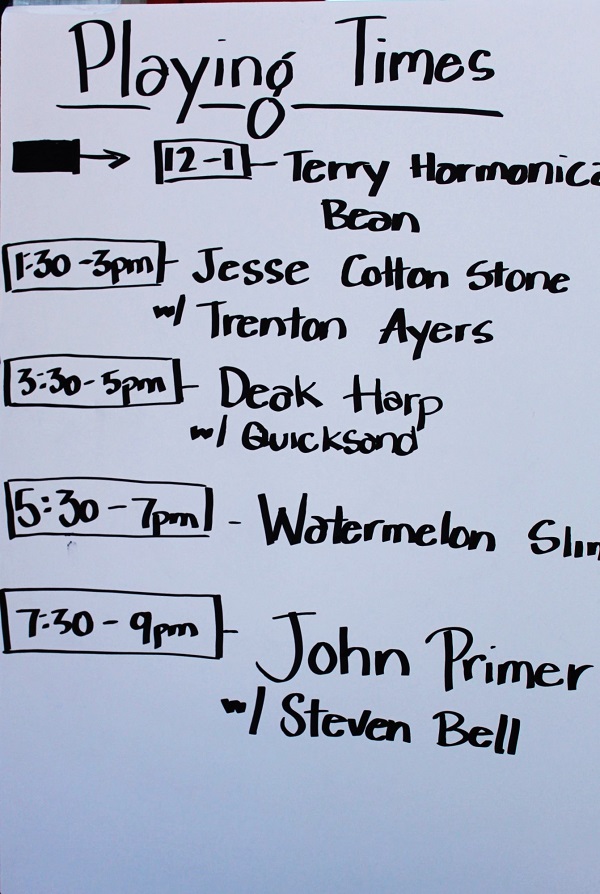 Playing Times
12-1 - Terry Harmonica
Bean
1:30-3pm - Jesse Cotton Stone
w/ Trenton Ayers
3:30-5pm - Deak Harp
w/ Quicksand
5:30-7pm - Watermelon Slim
7:30-9pm - John Primer
w/ Steven Bell